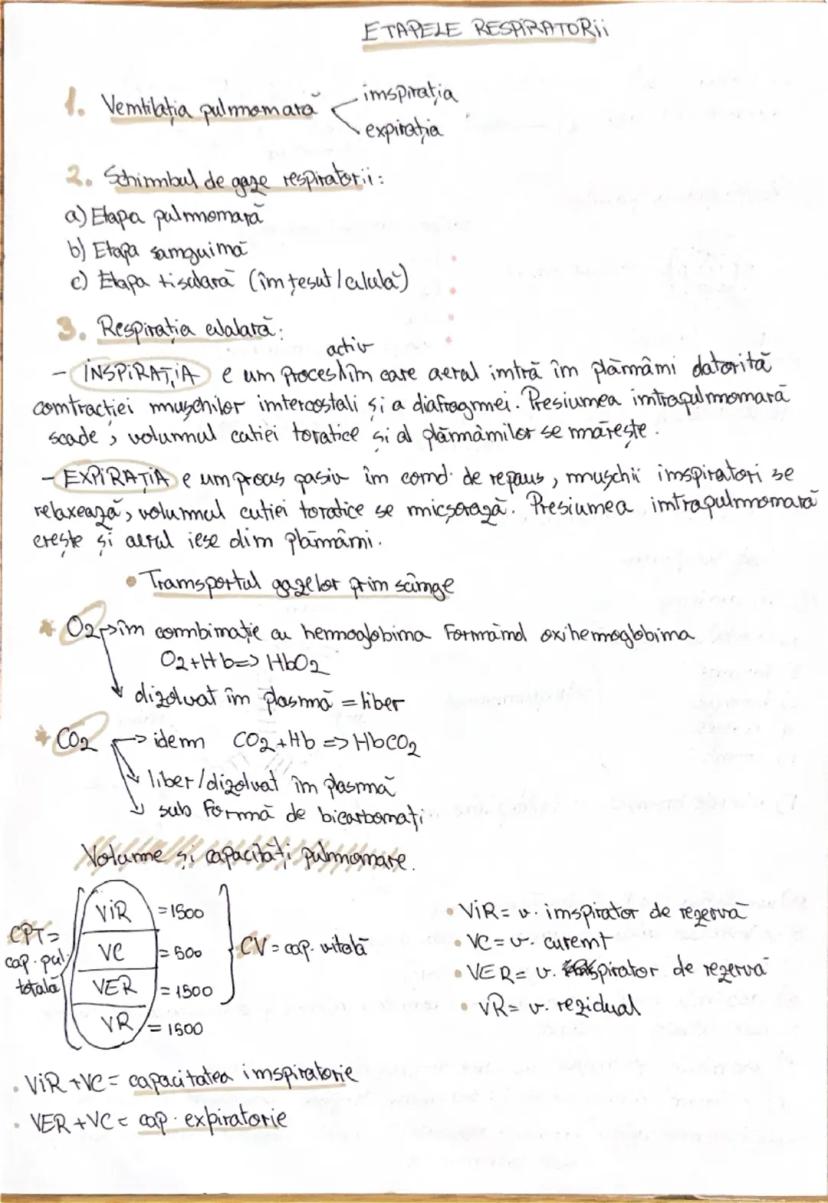 ETAPELE RESPIRATORII
1. Ventilația pulmonară
inspirația
expirația
2. Schimbul de gaze respiratorii:
a) Etapa pulmonară
b) Etapa sanguină
c) Etapa tisulară (în țesut/celulă)
3. Respirația celulară:
activ
- INSPIRAȚIA e un proces în care aerul intră în plămâni datorită
contracției mușchilor intercostali și a diafragmei. Presiunea intrapulmonară
scade, volumul cutiei toracice și al plămânilor se mărește.
- EXPIRAȚIA e un proces pasiv în cond. de repaus, mușchii inspiratori se
relaxează, volumul cutiei toracice se micșorază. Presiunea intrapulmonară
crește și aerul iese din plămâni.
• Transportul gazelor prin sânge
* O2 → în combinație cu hemoglobina formând oxihemoglobina
O2+Hb=> HbO2
dizolvat în plasmă = liber
* CO2 → idem CO2+Hb => HbCO2
liber/dizolvat în plasmă
sub formă de bicarbonați
Volume și capacități pulmonare.
CPT= cap. pul. totală
VIR = 1500
VC = 500
VER = 1500
VR = 1500
CV = cap. vitală
• VIR= v. inspirator de rezervă
• VC= v. curent
• VER= v. expirator de rezervă
• VR= v. rezidual
• VIR+VC= capacitatea inspiratorie
• VER+VC= cap. expiratorie